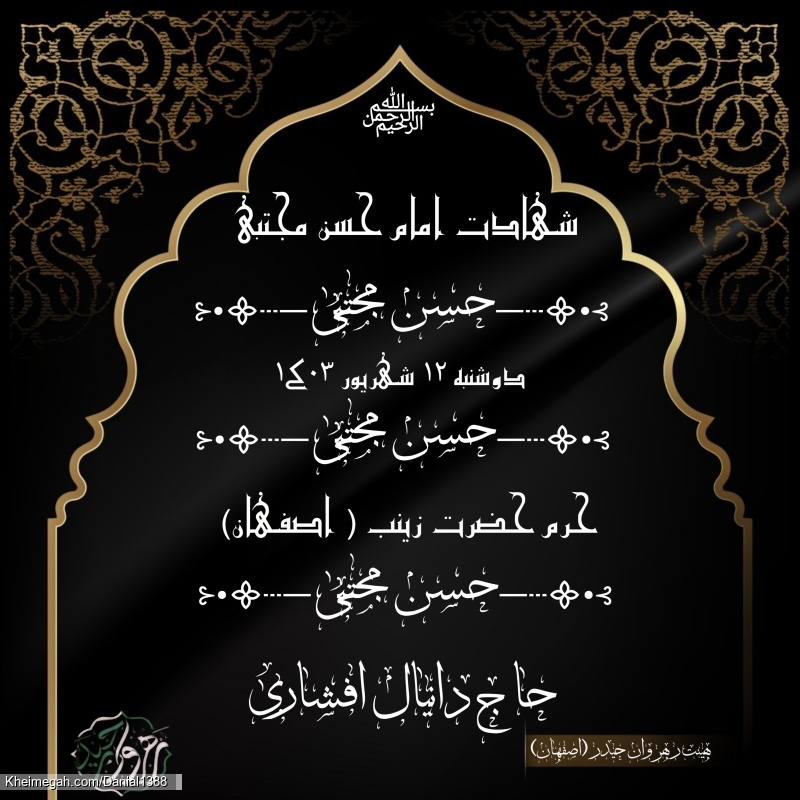 بسم الله الرحمن الرحیم
شهادت امام حسن مجتبی
حسن مجتبی
دوشنبه ۱۲ شهریور ۱۴۰۳
حسن مجتبی
حرم حضرت زینب ( اصفهان)
حسن مجتبی
حاج دانیال افشاری
هیئت رهروان حیدر (اصفهان)
رهروان حیدر
Kheimegah.com/Danial1388